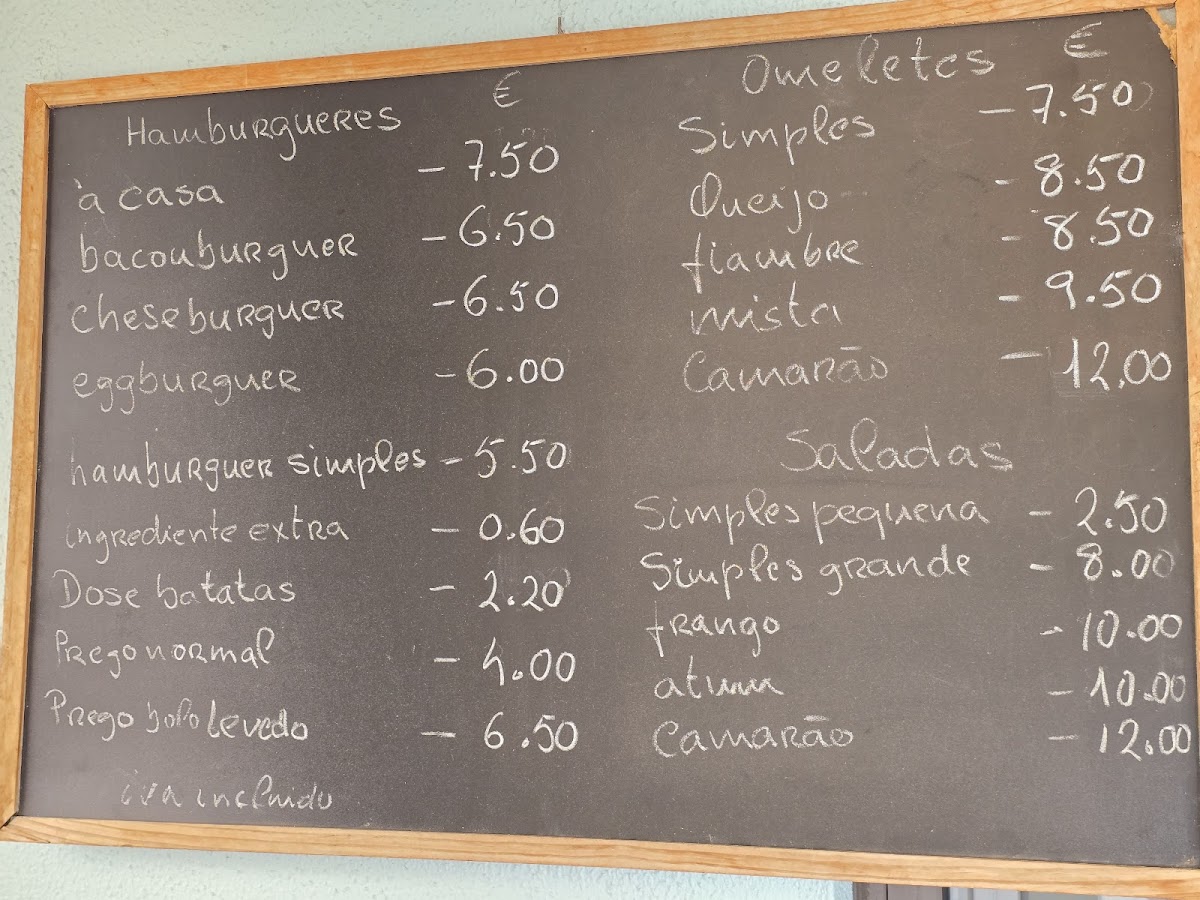 Hamburgueres €
à casa - 7.50
baconburguer - 6.50
cheseburguer - 6.50
eggburguer - 6.00
hamburguer simples - 5.50
ingrediente extra - 0.60
Dose batatas - 2.20
Prego normal - 4.00
Prego bolo levedo - 6.50
iva incluido
Omeletes €
Simples - 7.50
Queijo - 8.50
fiambre - 8.50
mista - 9.50
Camarão - 12.00
Saladas
Simples pequena - 2.50
Simples grande - 8.00
frango - 10.00
atum - 10.00
Camarão - 12.00